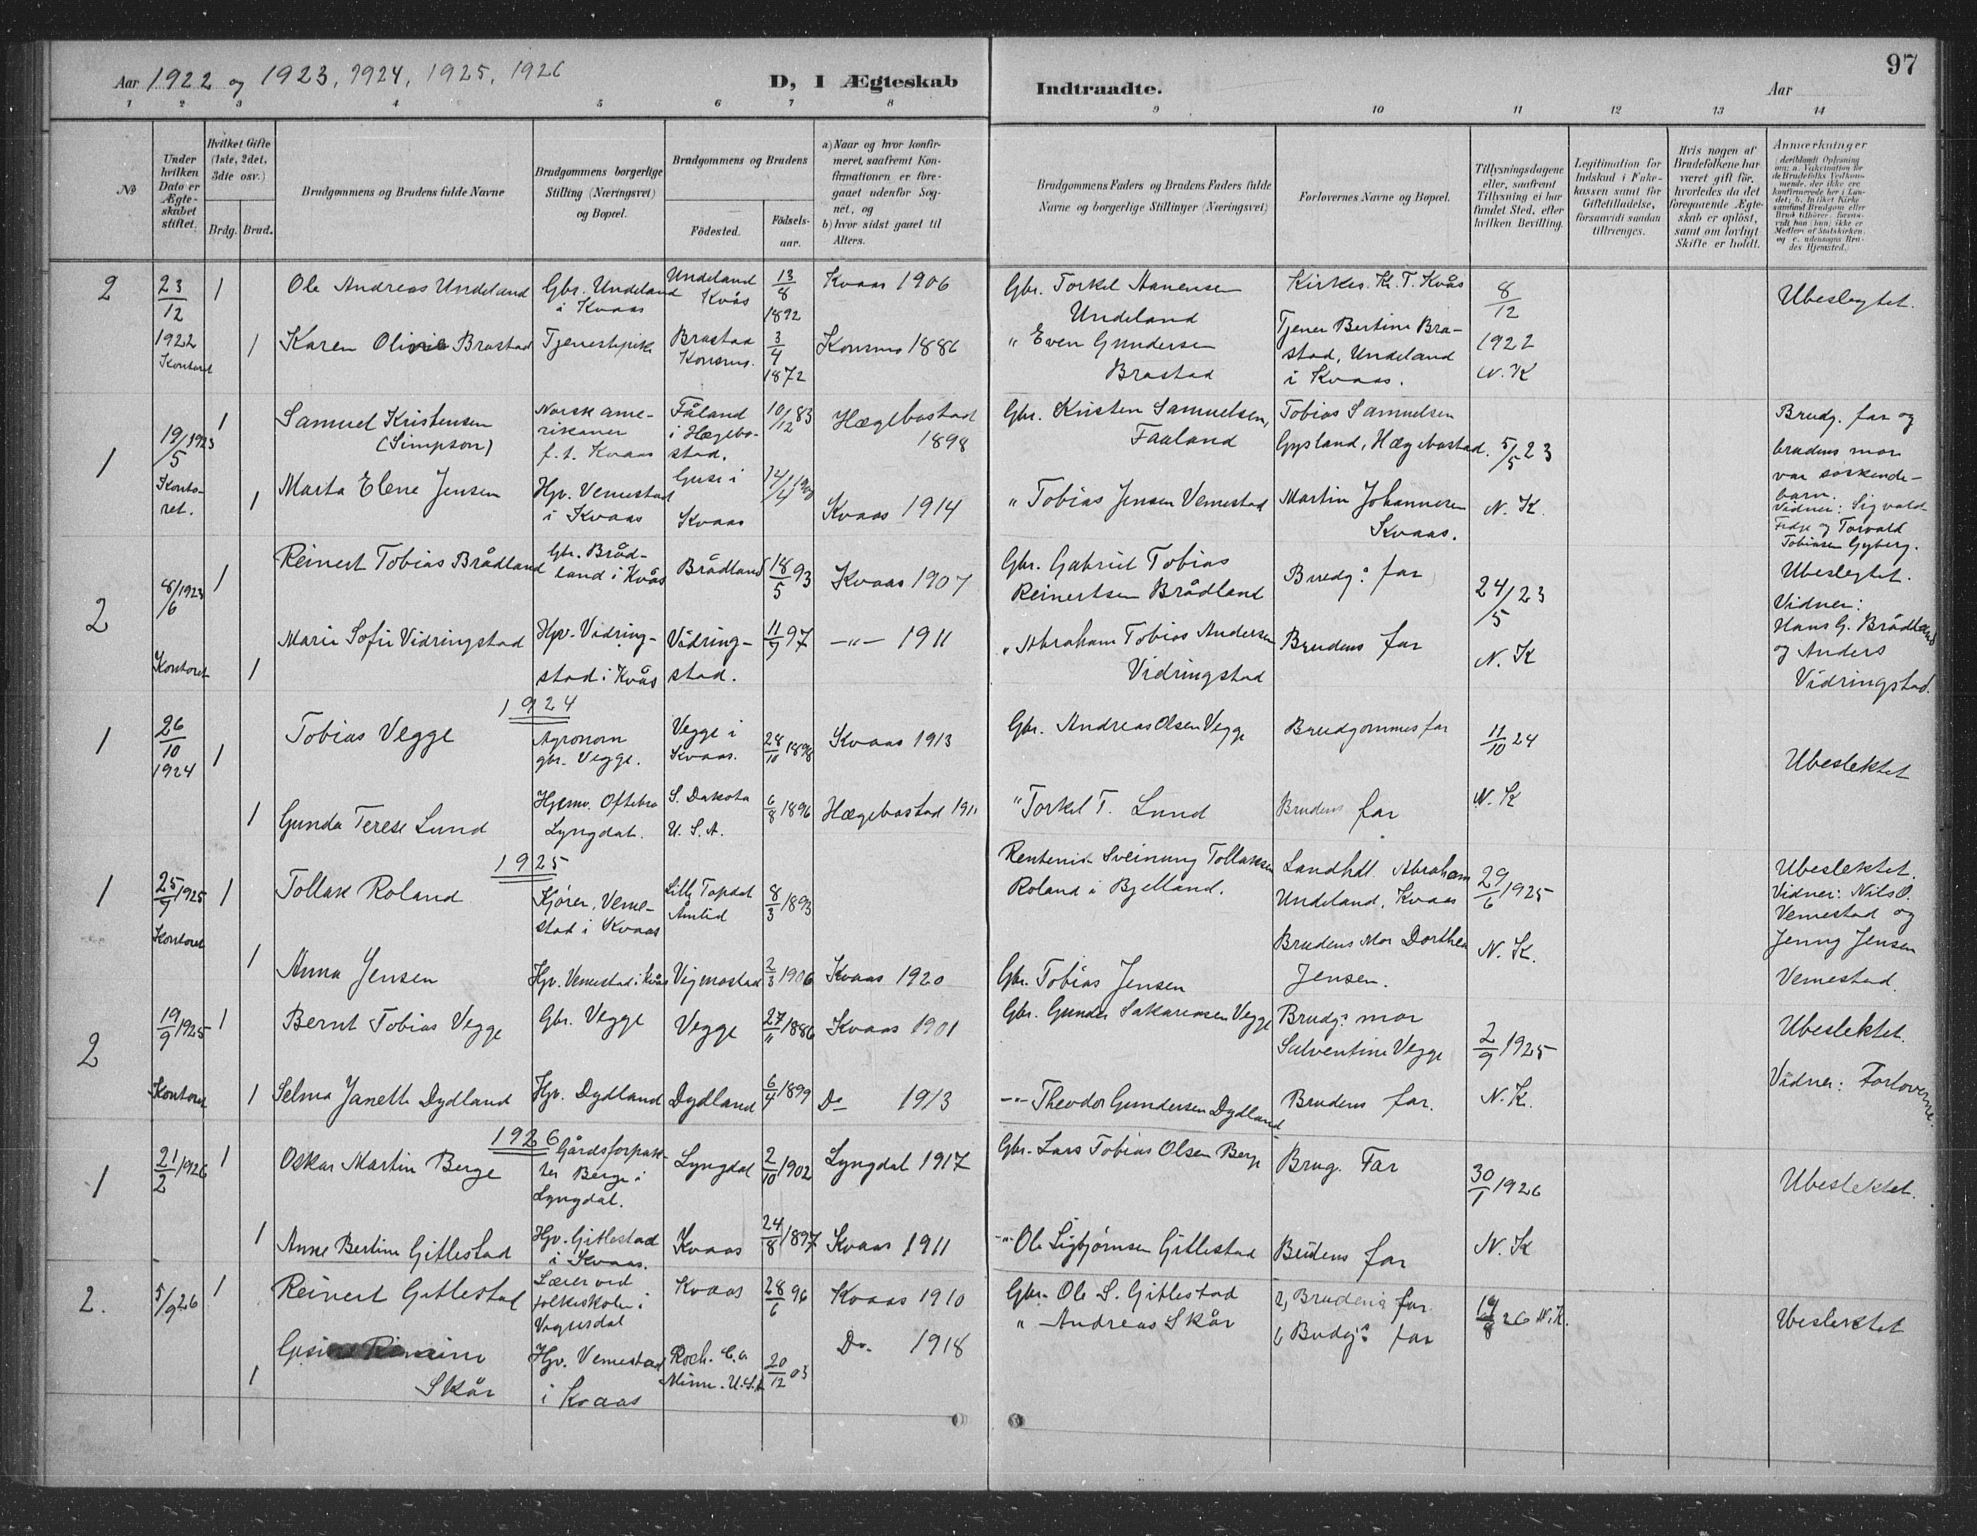 Aar 1922 og 1923, 1924, 1925, 1926
D, 1 Ægteskab
Indtraadte.
Aar
97
1 2 3 4 5 6 7 8 9 10 11 12 13 14
No
Under hvilken Dato er Ægteskabet stiftet.
Hvilket Gifte (1ste, 2det, 3die osv.)
Brdg. Brud.
Brudgommens og Brudens fulde Navne
Brudgommens borgerlige Stilling (Næringsvei) og Bopæl.
Brudgommens og Brudens
Fødested.
Fødselsaar.
a) Naar og hvor konfirmeret, saafremt Konfirmationen er foregaaet udenfor Sognet, og
b) hvor sidst gaaet til Alters.
Brudgommens Faders og Brudens Faders fulde Navne og borgerlige Stillinger (Næringsvei)
Forlovernes Navne og Bopæl.
Tillysningsdagene eller, saafremt Tillysning ei har fundet Sted, efter hvilken Bevilling.
Legitimation for Indskud i Enkekassen samt for Giftetilladelse, forsaavidt saadan tiltrænges.
Hvis nogen af Brudefolkene har været gift før, hvorledes da det foregaaende Ægteskab er opløst, samt om lovligt Skifte er holdt.
Anmærkninger
2 23/12 1922 Kontoret 1 Ole Andreas Undeland Gbr. Undeland i Kvaas Undeland Kvås 13/8 1892 Kvaas 1906 Gbr. Torkel Hanensen Undeland Kirkes. Kr. T. Kvås 8/12 1922 N. K Ubeslegtet.
1 Karen Olivie Brastad Tjenestepike Brastad Konsmo. 3/4 1872 Konsmo 1886 " Even Gundersen Brastad Tjener Bertine Brastad, Undeland i Kvaas.
1 19/5 1923 Kontoret. 1 Samuel Kristensen (Simpson) Norsk amerikaner f.t. Kvaas Fåland i Hægebostad. 10/12 83 Hæglbostad 1898 Gbr. Kristen Samuelsen, Faaland Tobias Samuelsen Gysland, Hægebostad. 5/5 23 N. K. Brudg. far og brudens mor var søskendebarn. Vidner: Sigvald Fedje og Torvald Tobiasen Gyberg.
1 Marta Elene Jensen Hjv. Vemestad i Kvaas i Kvaas 14/4 1900 Kvaas 1914 " Tobias Jensen Vemestad Martin Johannesen Kvaas.
2 8/6 1923 Kontoret 1 Reinert Tobias Brådland Gbr. Brådland i Kvås Brådland 18/5 93 Kvaas 1907 Gbr. Gabriel Tobias Reinertsen Brådland Brudg: far 24/5 23 N. K Ubeslegtet. Vidner: Hans G. Brådland og Anders Vidringstad.
1 Marie Sofie Vidringstad Hjv. Vidringstad i Kvås Vidringstad. 11/9 97 -"- 1911 " Abraham Tobias Andersen Vidringstad Brudens far
1924
1 26/10 1924 1 Tobias Vegge Agronom gbr. Vegge. Vegge i Kvaas. 28/10 1898 Kvaas 1913 Gbr. Andreas Olsen Vegge Brudgommes far 11/10 24 N. K Ubeslektet
1 Gunda Terese Lund Hjemv. Oftebro Lyngdal. S. Dakota U. S. A. 6/8 1896 Hægebostad 1911 " Torkel T. Lund Brudens far
1925
1 25/7 1925 Kontoret 1 Tollak Roland Kjører, Vemestad i Kvaas Lille Topdal Åmlid 8/3 1893 Rentenist Sveinung Tollaksen Roland i Bjelland. Landhdl. Abraham Undeland, Kvaas 29/6 1925 N. K. Ubeslektet. Vidner: Nils O. Vemestad og Jenny Jensen Vemestad.
1 Anna Jensen Hjv. Vemestad i Kvås Vigmostad 2/3 1906 Kvaas 1920 Gbr. Tobias Jensen Brudens Mor Dorthea Jensen.
2 19/9 1925 Kontoret 1 Bernt Tobias Vegge Gbr. Vegge Vegge 27/11 1886 Kvaas 1901 Gbr. Gunder Sakariasen Vegge Brudg: mor Salventine Vegge 2/9 1925 N. K. Ubeslektet. Vidner: Forloverne.
1 Selma Janette Dydland Hjv. Dydland Dydland 6/4 1899 Do 1913 -"- Theodor Gundersen Dydland Brudens far.
1926
1 21/2 1926 1 Oskar Martin Berge Gårdsforpakter Berge i Lyngdal. Lyngdal 2/10 1902 Lyngdal 1917 Gbr. Lars Tobias Olsen Berge Brug. Far 30/1 1926 N. K Ubeslektet.
1 Anne Bertine Gitlestad Hjv. Gitlestad i Kvaas. Kvaas 24/8 1897 Kvaas 1911 -"- Ole Sigbjørnsen Gitlestad Brudens far
2. 5/9 26 1 Reinert Gitlestad Lærer ved folkeskolen i Kvaas 28/6 96 Kvaas 1910 Gbr. Ole S. Gitlestad 2, Brudens far 14/8 26 N. K. Ubeslektet
1 Skår Hjv. Vemestad i Kvaas Roch. Co. Minn. U.S.A 20/12 03 Do. 1918 " Andreas Skår 1, Brudg: far